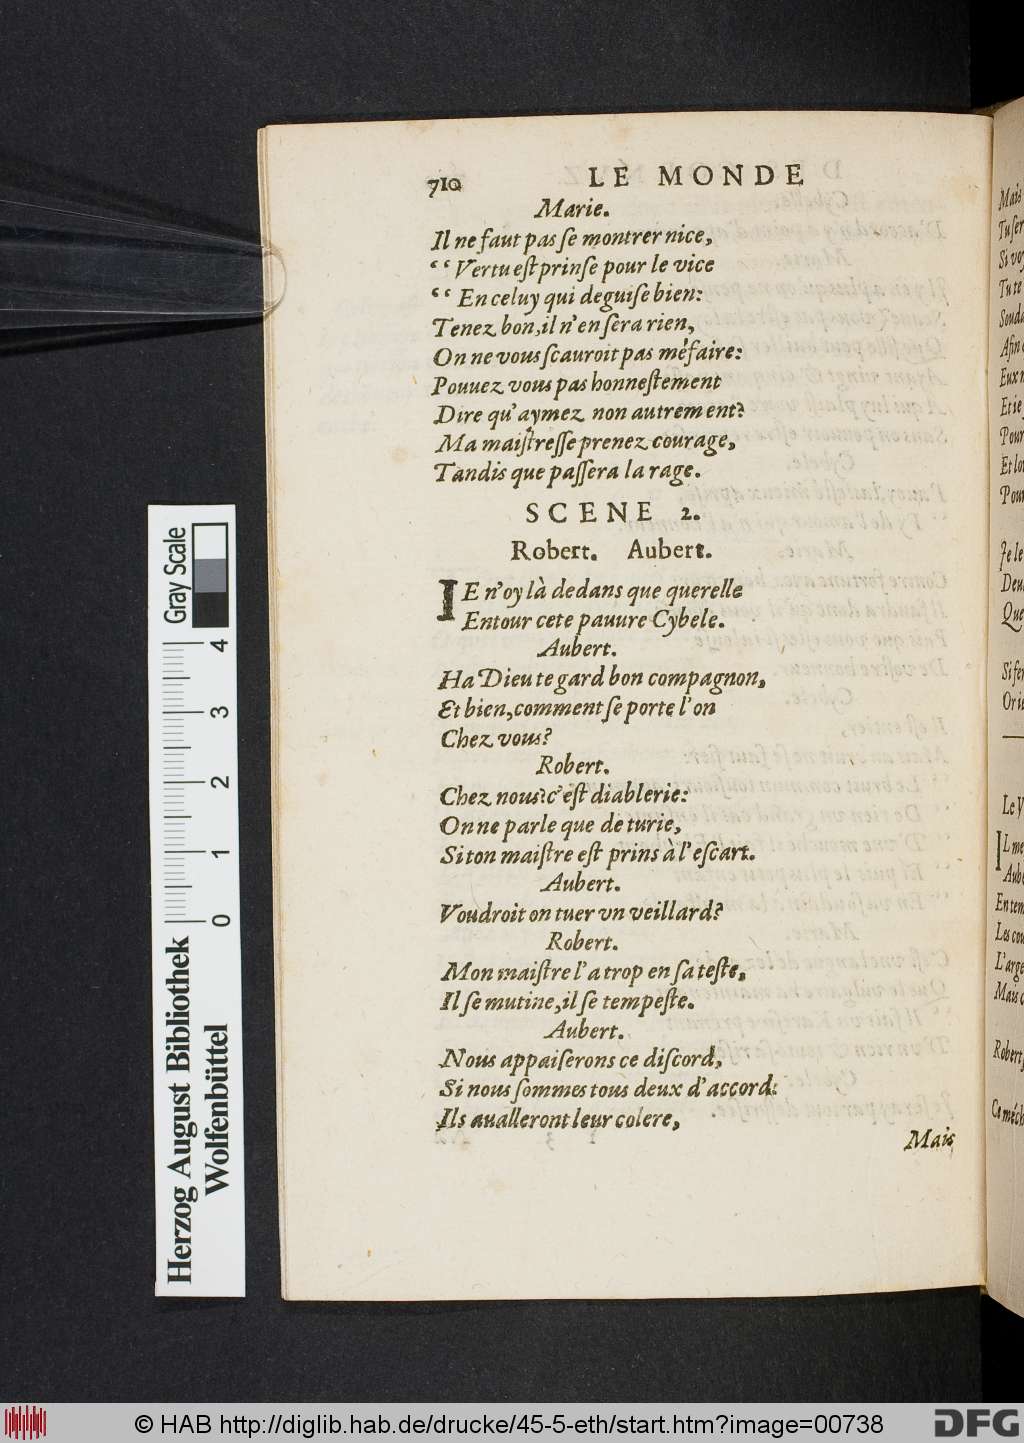 710 LE MONDE
Marie.
Il ne faut pas ſe montrer nice,
“ Vertu eſt prinſe pour le vice
“ En celuy qui deguiſe bien:
Tenez bon, il n'en ſera rien,
On ne vous ſcauroit pas méfaire:
Pouuez vous pas honneſtement
Dire qu'aymez non autrement?
Ma maiſtreſſe prenez courage,
Tandis que paſſera la rage.
SCENE 2.
Robert. Aubert.
IE n'oy là dedans que querelle
Entour cete pauure Cybele.
Aubert.
Ha Dieu te gard bon compagnon,
Et bien, comment ſe porte l'on
Chez vous?
Robert.
Chez nous? c'eſt diablerie:
On ne parle que de turie,
Si ton maiſtre eſt prins à l'eſcart.
Aubert.
Voudroit on tuer vn veillard?
Robert.
Mon maiſtre l'a trop en ſa teſte,
Il ſe mutine, il ſe tempeſte.
Aubert.
Nous appaiſerons ce diſcord,
Si nous ſommes tous deux d'accord:
Ils aualleront leur colere,
Mais
Mais
Tu ſer
Si voy
Tu te
Souda
Afin
Eux
Et ie
Pour
Et
Pour
Je le
Deu
Que
Si ſer
Or ie
Le V
Il me
Aube
En tem
Les cou
L'arge
Mais
Robert,
Ce méch
Gray Scale
0 1 2 3 4
Herzog August Bibliothek
Wolfenbüttel
© HAB http://diglib.hab.de/drucke/45-5-eth/start.htm?image=00738
DFG